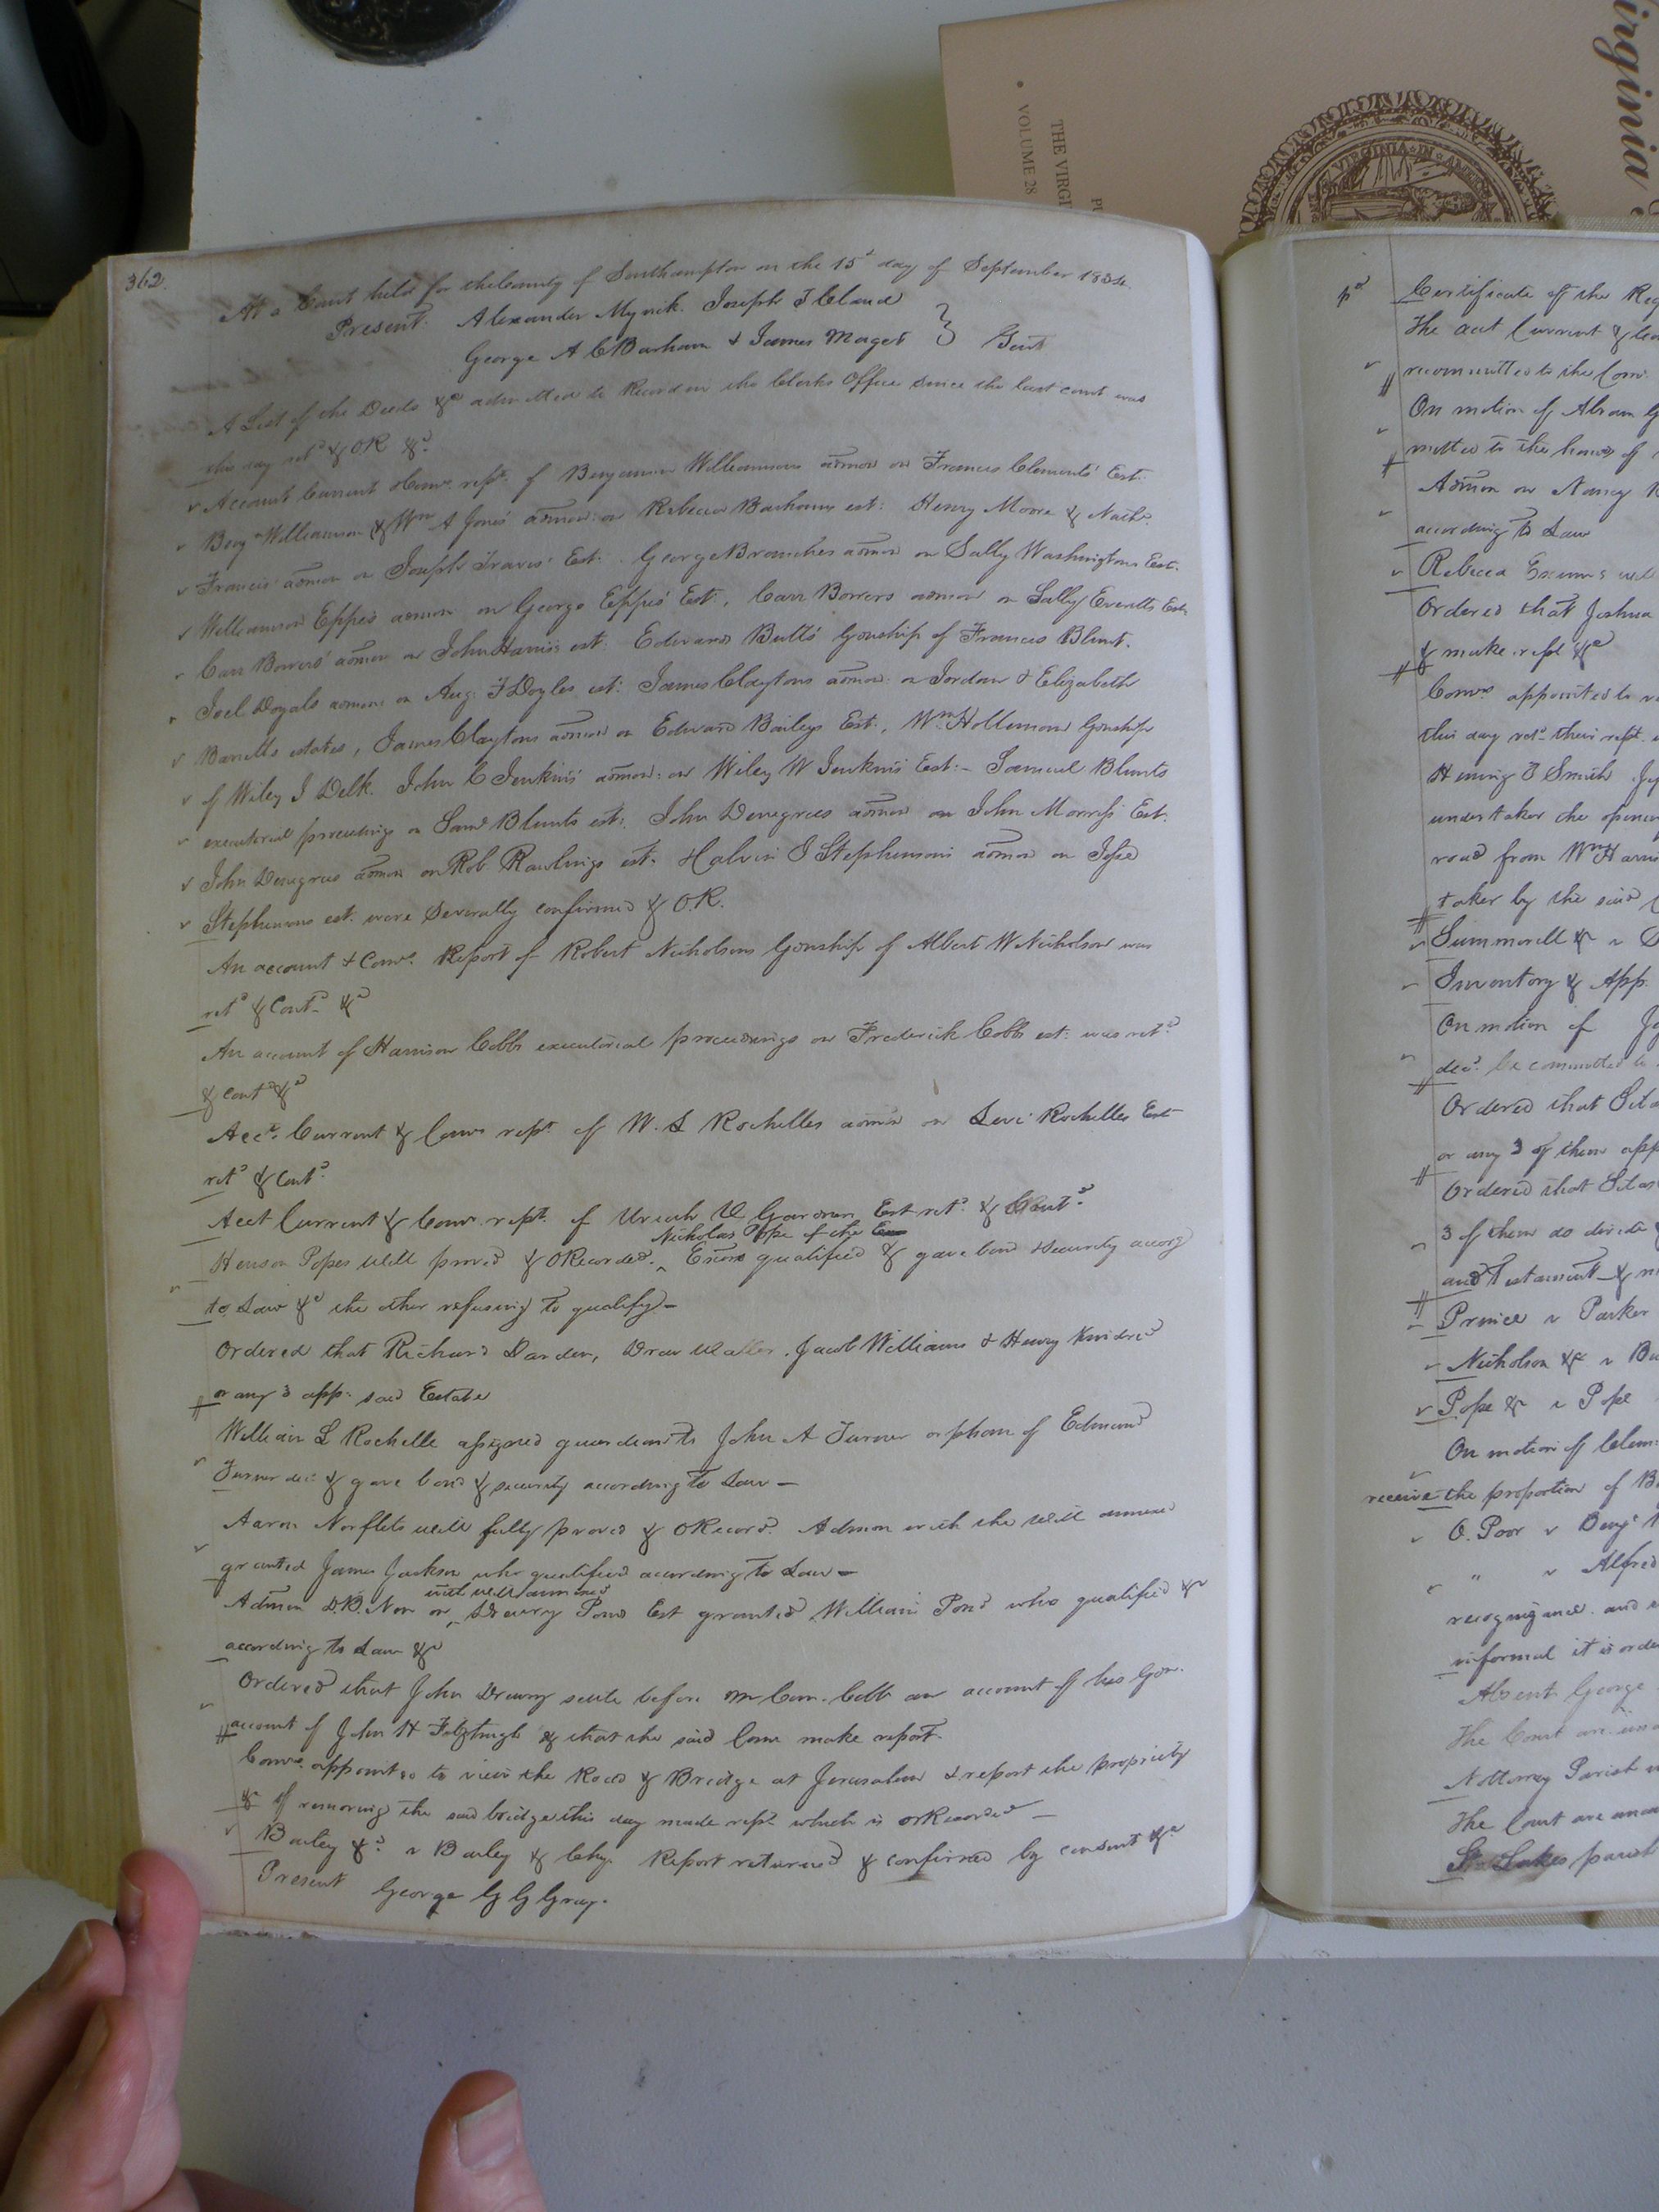 irginia
THE VIRGI
VOLUME 28
VIRGINIA IN AMER
362.
At a Court held for the County of Southampton on the 15th day of September 1834.
Present. Alexander Myrick. Joseph T Claud
George A C Barham & James Maget } Gent
A List of the Deeds &c admitted to Record in the Clerks Office since the last court was
this day retd & OR &c.
Account Current & Comrs. rept. of Benjamin Williamsons admon on Francis Clements' Est.
Benj Williamson & Wm A Jones' admon. on Rebecca Barhams est: Henry Moore & Nathl.
Francis' admon on Joseph Travis' Est: George Branches admon on Sally Washingtons Est.
Williamson Eppes admon on George Eppes' Est, Carr Bowers admon on Sally Everetts Est.
Carr Bowers' admon on John Harris est: Edwards Butts' Gonship of Francis Blunt.
Joel Doyals admon on Aug: F Doyles est: James Claytons admon: on Jordan & Elizabeth
Barretts estates, James Claytons admon on Edward Baileys Est., Wm Hollemans Gonship
of Wiley J Delk. John C Jenkins' admon: on Wiley W Jenkins Est:- Samuel Blunts
executorial proceedings on Saml Blunts est: John Denegres admon on John Morriss Est.
John Denegres admon on Rob Rawlings est. S Stephensons admon on Jesse
Stephensons est. were Severally confirmed & O.R.
An account & Comrs. Report of Robert Nicholsons Gonship of Albert W Nicholson was
retd & Contd &c
An account of Harrison Cobbs executorial proceedings on Frederick Cobbs est: was retd
& contd &c
Acct. Current & Comrs rept. of W. L Rochelles admon on Levi Rochelles Est
retd & Contd.
Acct Current & Comrs rept. of Uriah Est retd. & Contd.
Nicholas Pope of the Exo
Henson Popes Will proved & O Recorded. ^ Exors qualified & gave bond & security accorg
to Law &c the other refusing to qualify—
Ordered that Richard Darden, Drew Waller, Jacob Williams & Henry Kindred
or any 3 app: said Estate
William L Rochelle assigned guardian to John A Turner orphan of Edmund
Turner dec: & gave bond & security according to Law —
Aaron Norflets will fully proved & O Record. Admon with the Will annexed
granted James Jackson who qualified according to Law —
with will annexed
Admon D.B. Non on ^ Drewry Ponds Est granted William Pond who qualified &c
according to Law &c
Ordered that John Drewry settle before Mr Com. Cobb an account of his Gon.
account of John H Fitzhugh & that the said Com make report.
Comrs. appointed to view the Road & Bridge at Jerusalem & report the propriety
&c of removing the said bridge this day made rept. which is or Recorded —
Bailey &c. v Bailey & Chy. Report returned & confirmed by consent &c
Present George G G Gray.
Certificate of the Reg
The acct Current &
recommitted to the Com.
On motion of Abram
mitted to the hands of
Admon on Nancy
according to Law
Rebecca Exums will
Ordered that Joshua
& make rept &c
Comrs appointed to
this day retd their rept.
Smith
undertaker the opening
road from Wm Harris
taker by the said
Summerell & v
Inventory & App.
On motion of
dec. be committed to
Ordered that Silas
or any 3 of them app
Ordered that Silas
3 of them do divide
and Testament &
Prince v Parker
Nicholson &c v
Pope &c v Pope
On motion of Clem
receive the proportion of
O. Poor v Benj
" v Alfred
recognizance and
informal it is orde
Absent George
The Court are
Nottoway Parish
The Court are
St Lukes parish